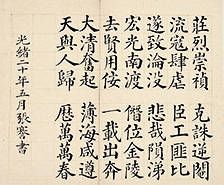 莊烈崇禎 克誅逆閹
流寇肆虐 臣工匪比
遂致淪沒 悲哉隕涕
宏光南渡 僭位金陵
去賢用佞 一載出奔
大清奮起 薄海咸遵
天與人歸 厯萬萬春
光緒二十年五月張謇書